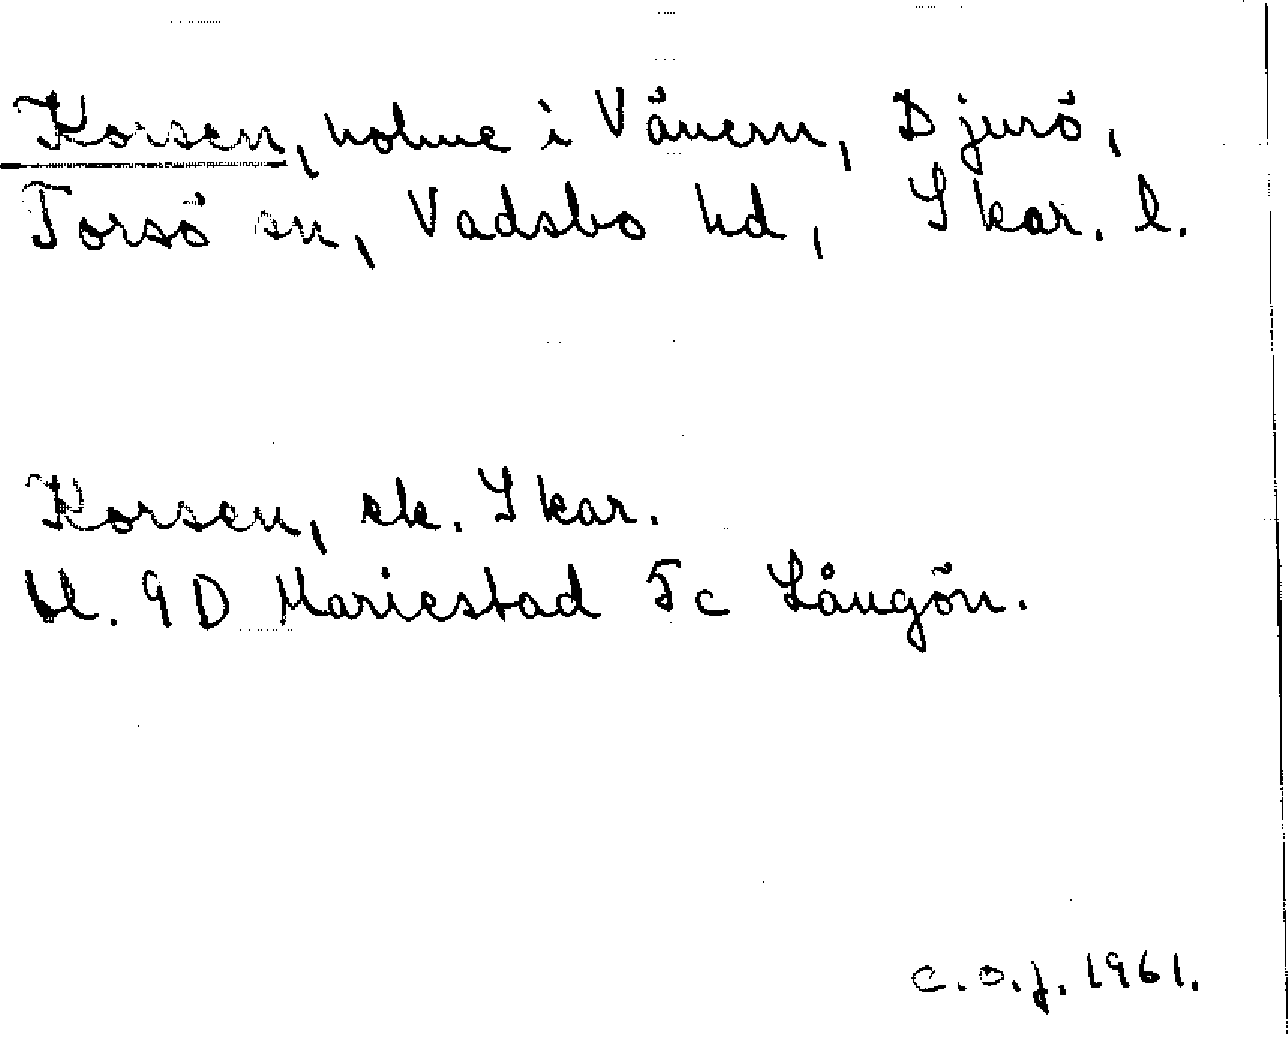 Korsen, holme i Vänern, Djurö,
Torsö sn, Vadsbo hd, Skar. l.
Korsen, ek. Skar.
bl. 9D Mariestad 5c Långön.
C.O.J. 1961.